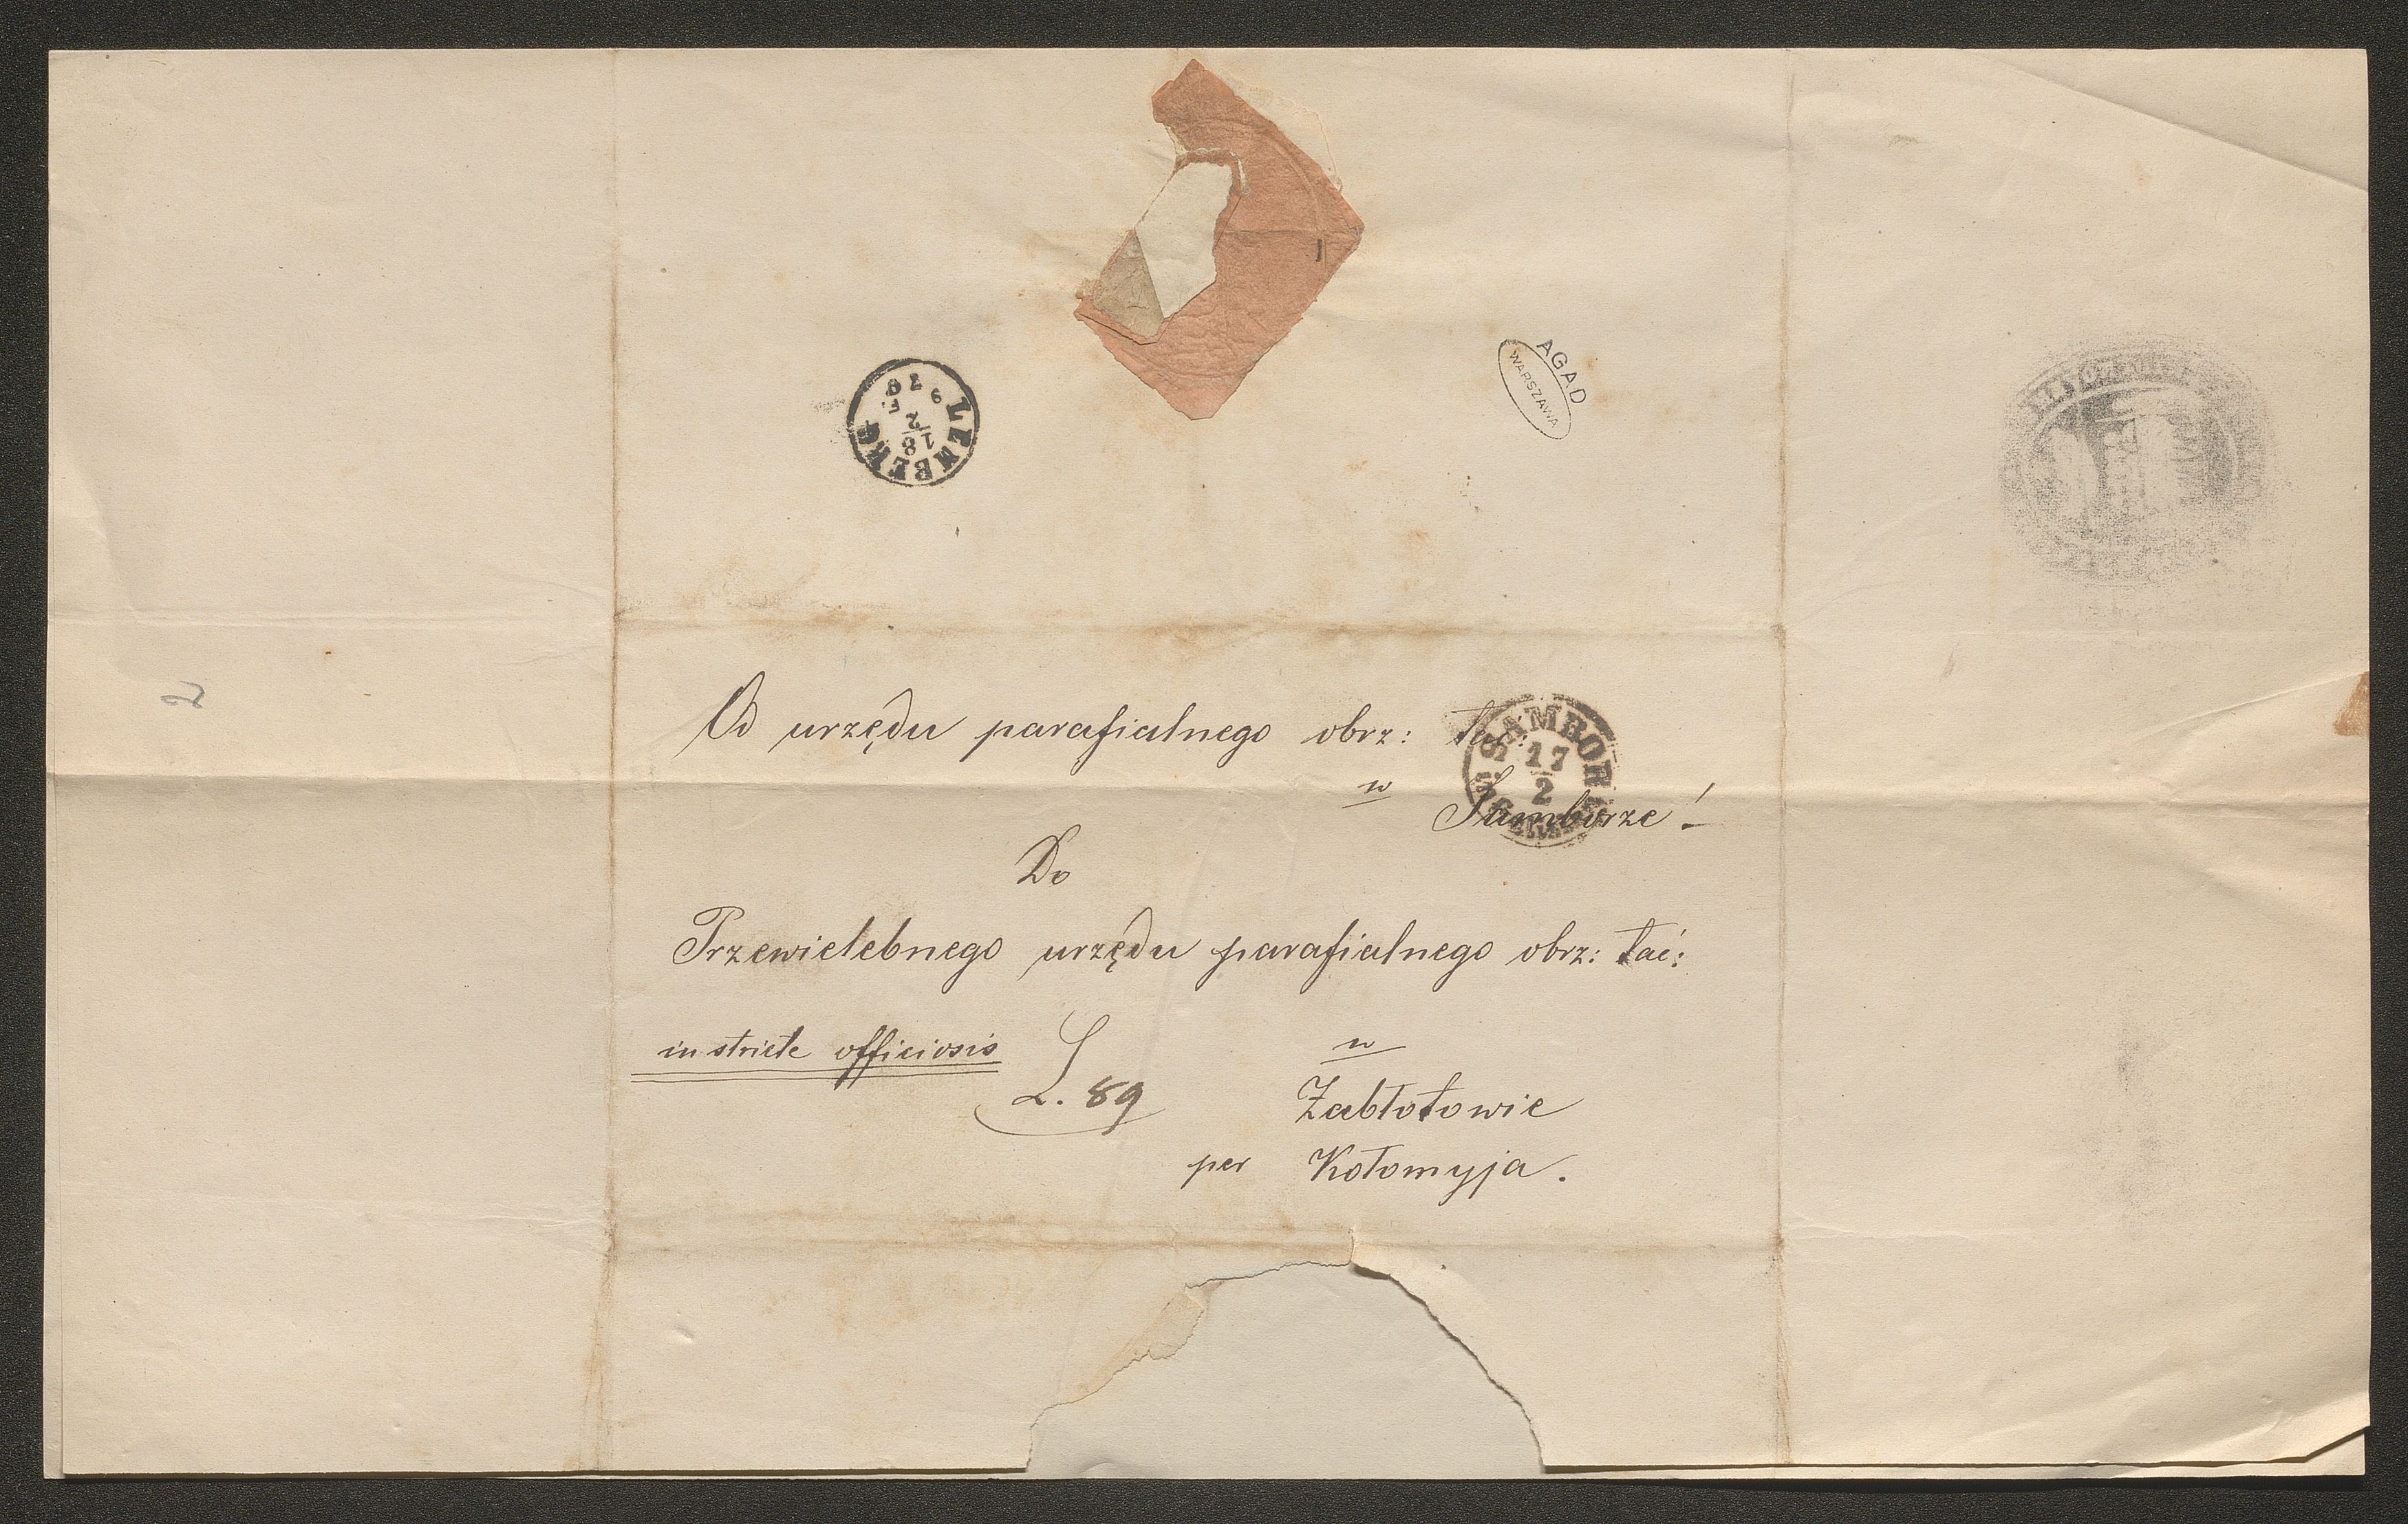 LEMBERG
18
2
9 F.
79
AGAD
WARSZAWA
Od urzędu parafialnego obrz: łać:
SAMBOR
17
2
w
Samborze!
Do
Przewielebnego urzędu parafialnego obrz: łać:
in stricte officiosis
L. 89
w
Zabłotowie
per Kołomyja.